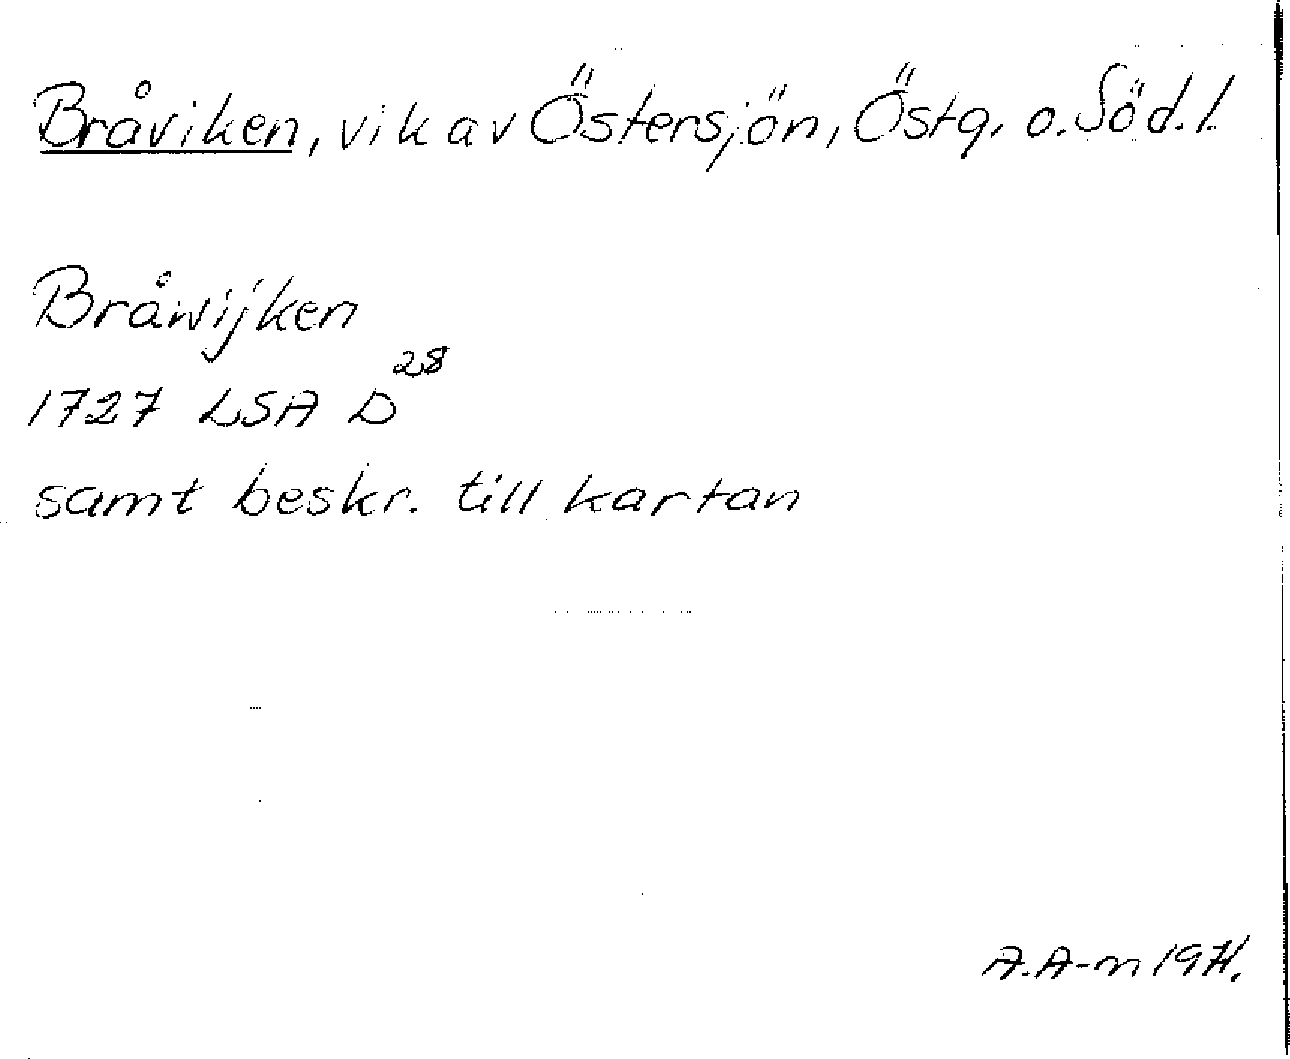 Bråviken, vik av Östersjön, Östg. o. Söd.l.
Bråwijken
1727 LSA D²⁸
samt beskr. till kartan
A.A-m 1971.